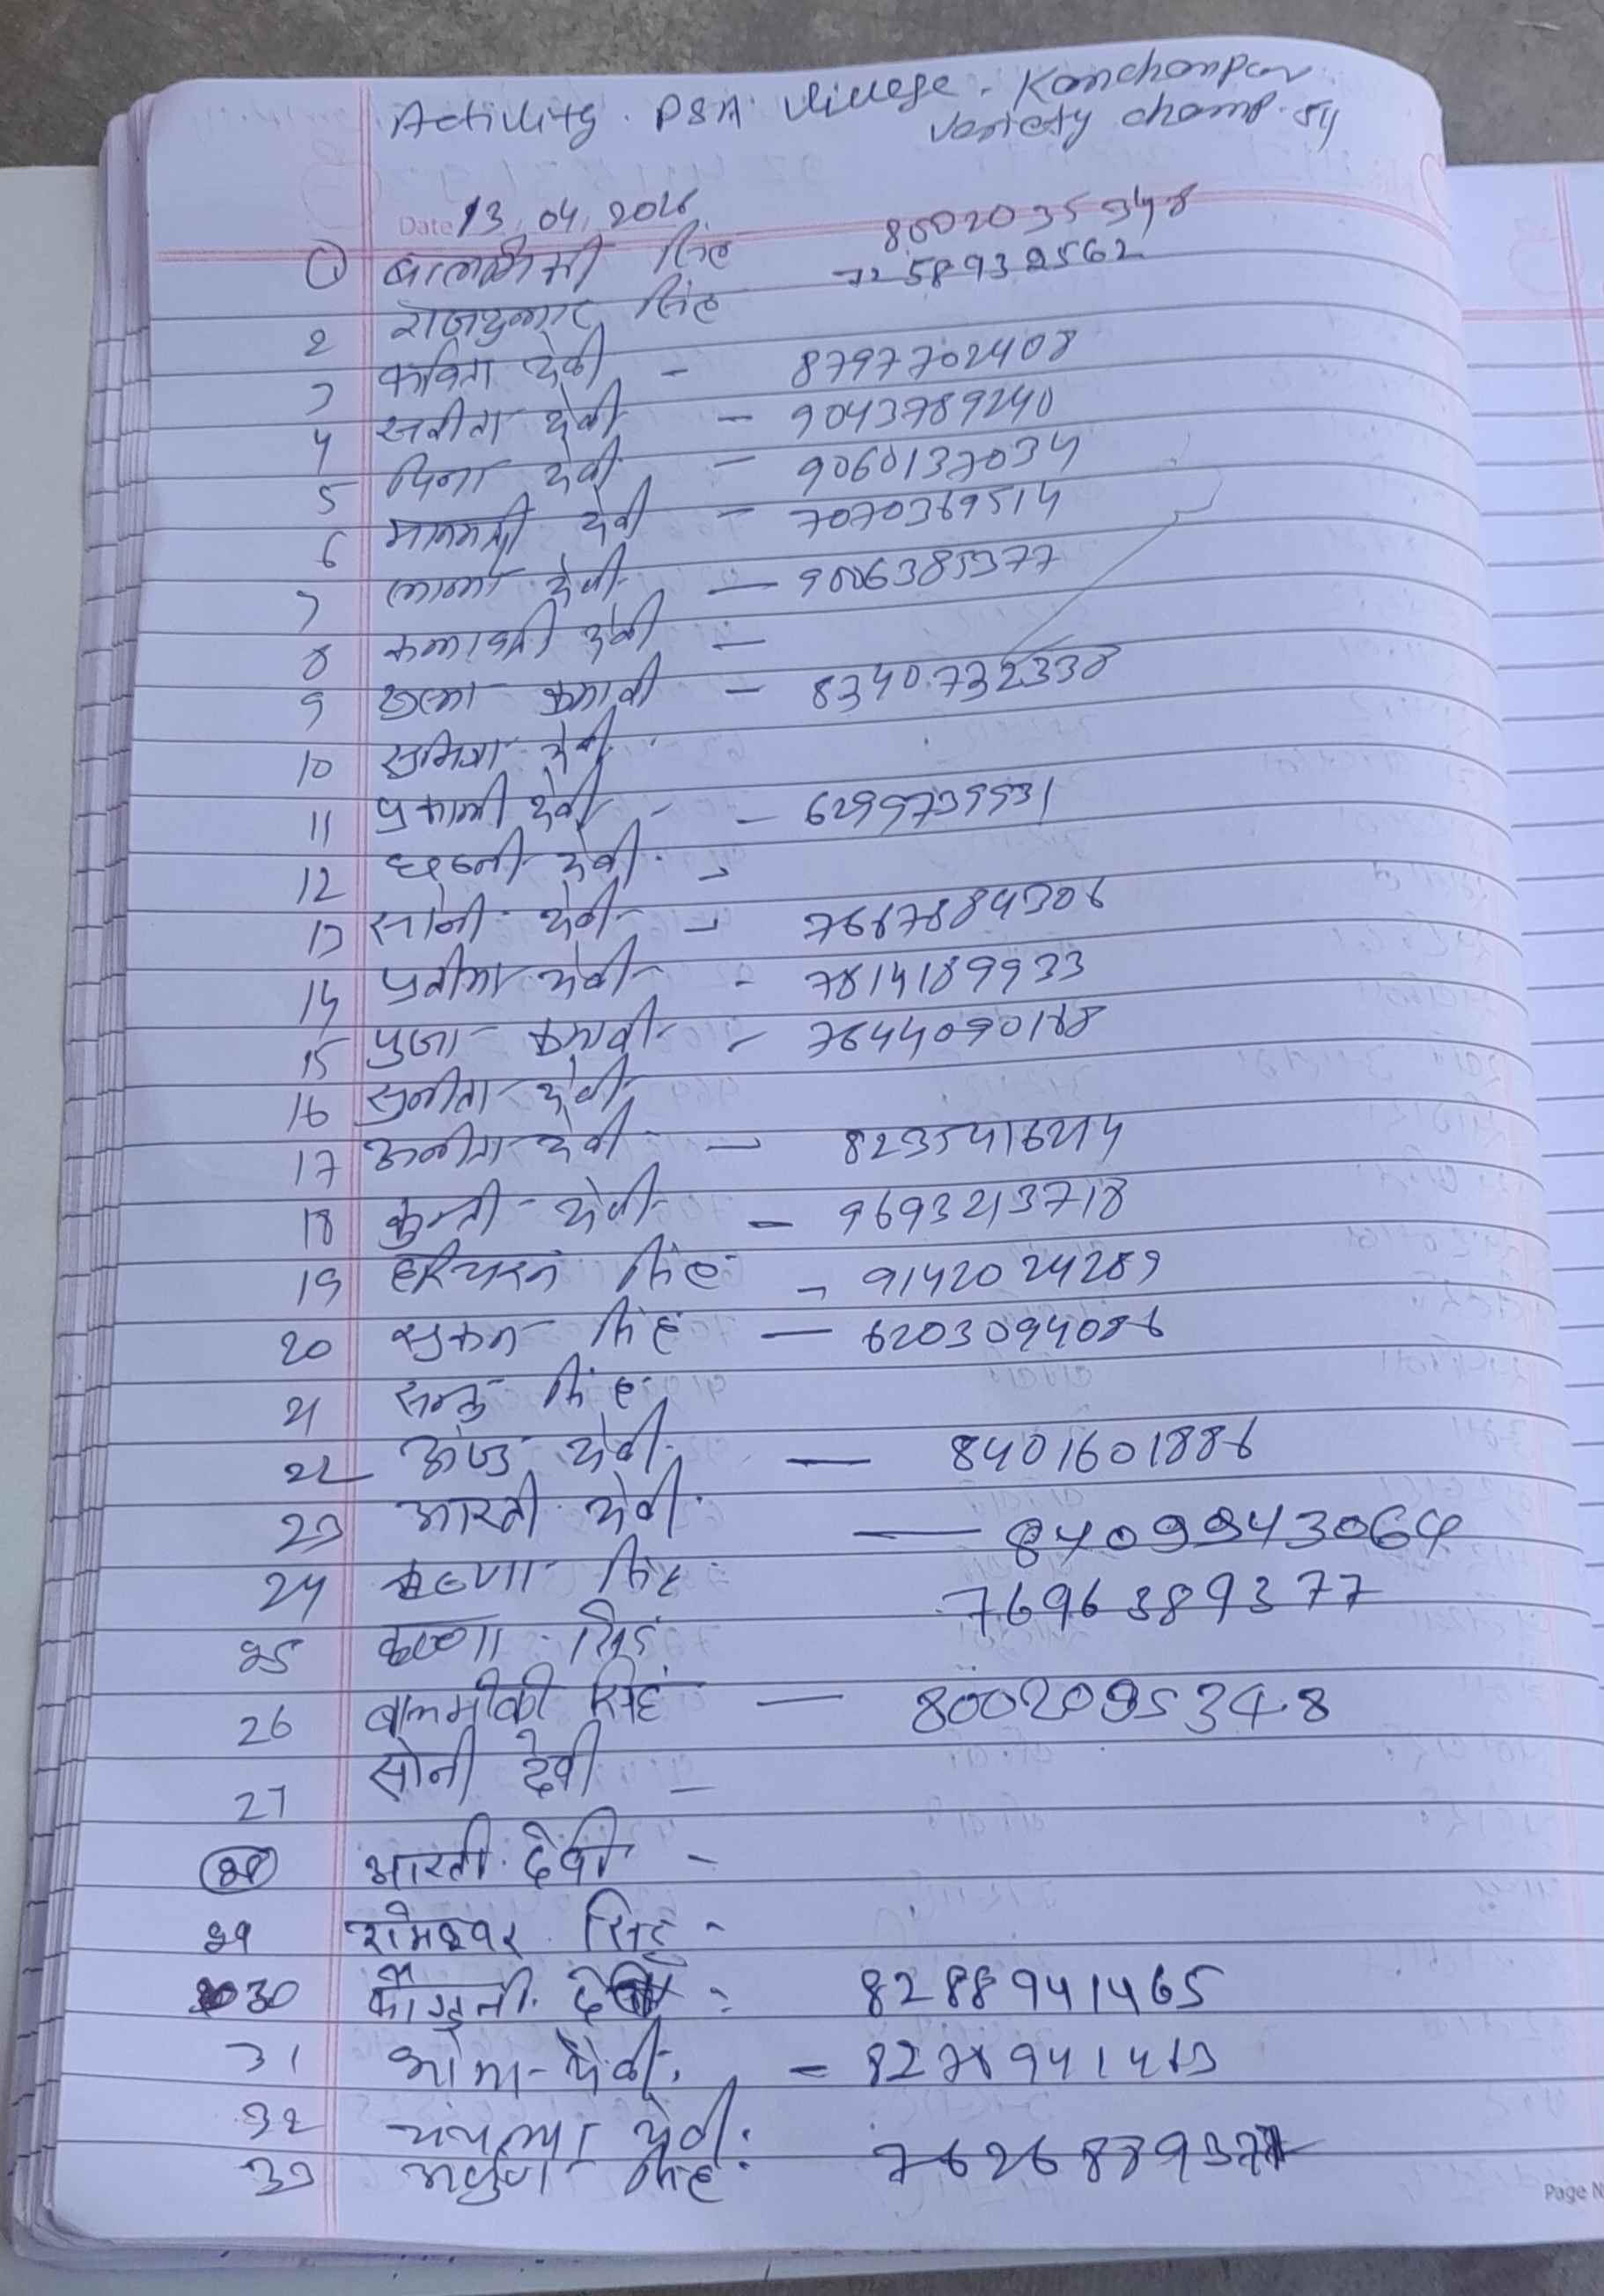 Activity. PSA. Village. Kanchanpur
Variety champ. 54
Date 13.04.2026
① बालमिकी सिंह 8002035348
2 राजकुमार सिंह 7258932562
3 कविता देवी - 8797702408
4 सबीता देवी - 9043789240
5 देवी - 9060137034
6 मानमती देवी - 7070369514
7 देवी - 9006385377
8 कलावती देवी -
9 कुमारी - 8340732338
10 सुमित्रा देवी
11 देवी - 6299739931
12 देवी -
13 सोनी देवी - 7667884306
14 प्रतीमा देवी - 7814189933
15 पुजा कुमारी - 7644090168
16 सुनीता देवी
17 अनीता देवी - 8235416214
18 कुन्ती देवी - 9693213718
19 हरिचरन सिंह - 9142024289
20 सिंह - 6203094086
21 सिंह
22 देवी - 8401601886
23 आरती देवी - 8409943064
24 सिंह 7696389377
25 सिंह
26 बालमीकी सिंह - 8002095348
27 सोनी देवी -
28 आरती देवी -
29 रामेश्वर सिंह -
30 8288941465
31 देवी - 8278941413
32 देवी
33 सिंह